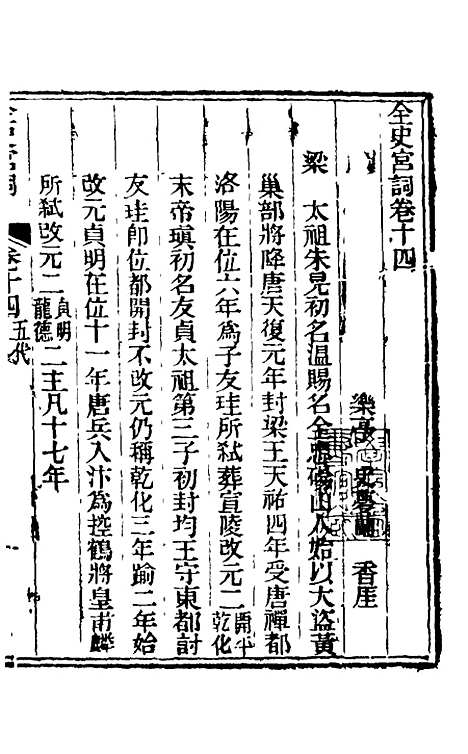 全史宮詞卷十四
樂亭 史夢蘭 香厓
梁 太祖朱晃初名溫賜名全忠碭山人始以大盜黃
巢部將降唐天復元年封梁王天祐四年受唐禪都
洛陽在位六年為子友珪所弒葬宣陵改元二開平乾化
末帝瑱初名友貞太祖第三子初封均王守東都討
友珪卽位都開封不改元仍稱乾化三年踰二年始
改元貞明在位十一年唐兵入汴為控鶴將皇甫麟
所弒改元二貞明龍德二主凡十七年
全史宮詞 卷十四 五代